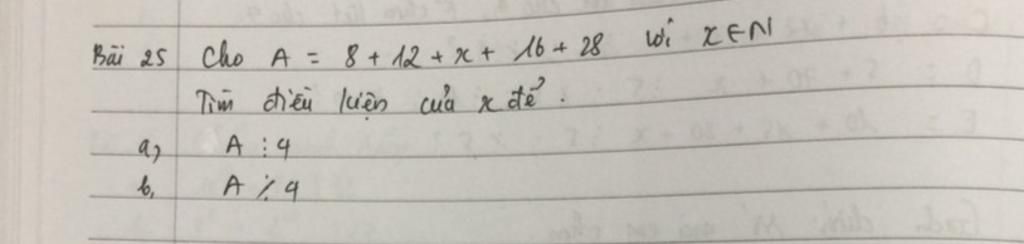 Bài 25 Cho A = 8 + 12 + x + 16 + 28 với x ∈ N
Tìm điều kiện của x để.
a, A ⋮ 4
b, A ⋮̸ 4